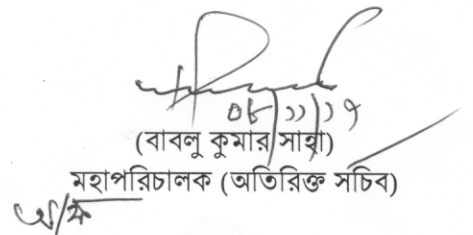 ০৮/১১/১৭
(বাবলু কুমার সাহা)
মহাপরিচালক (অতিরিক্ত সচিব)